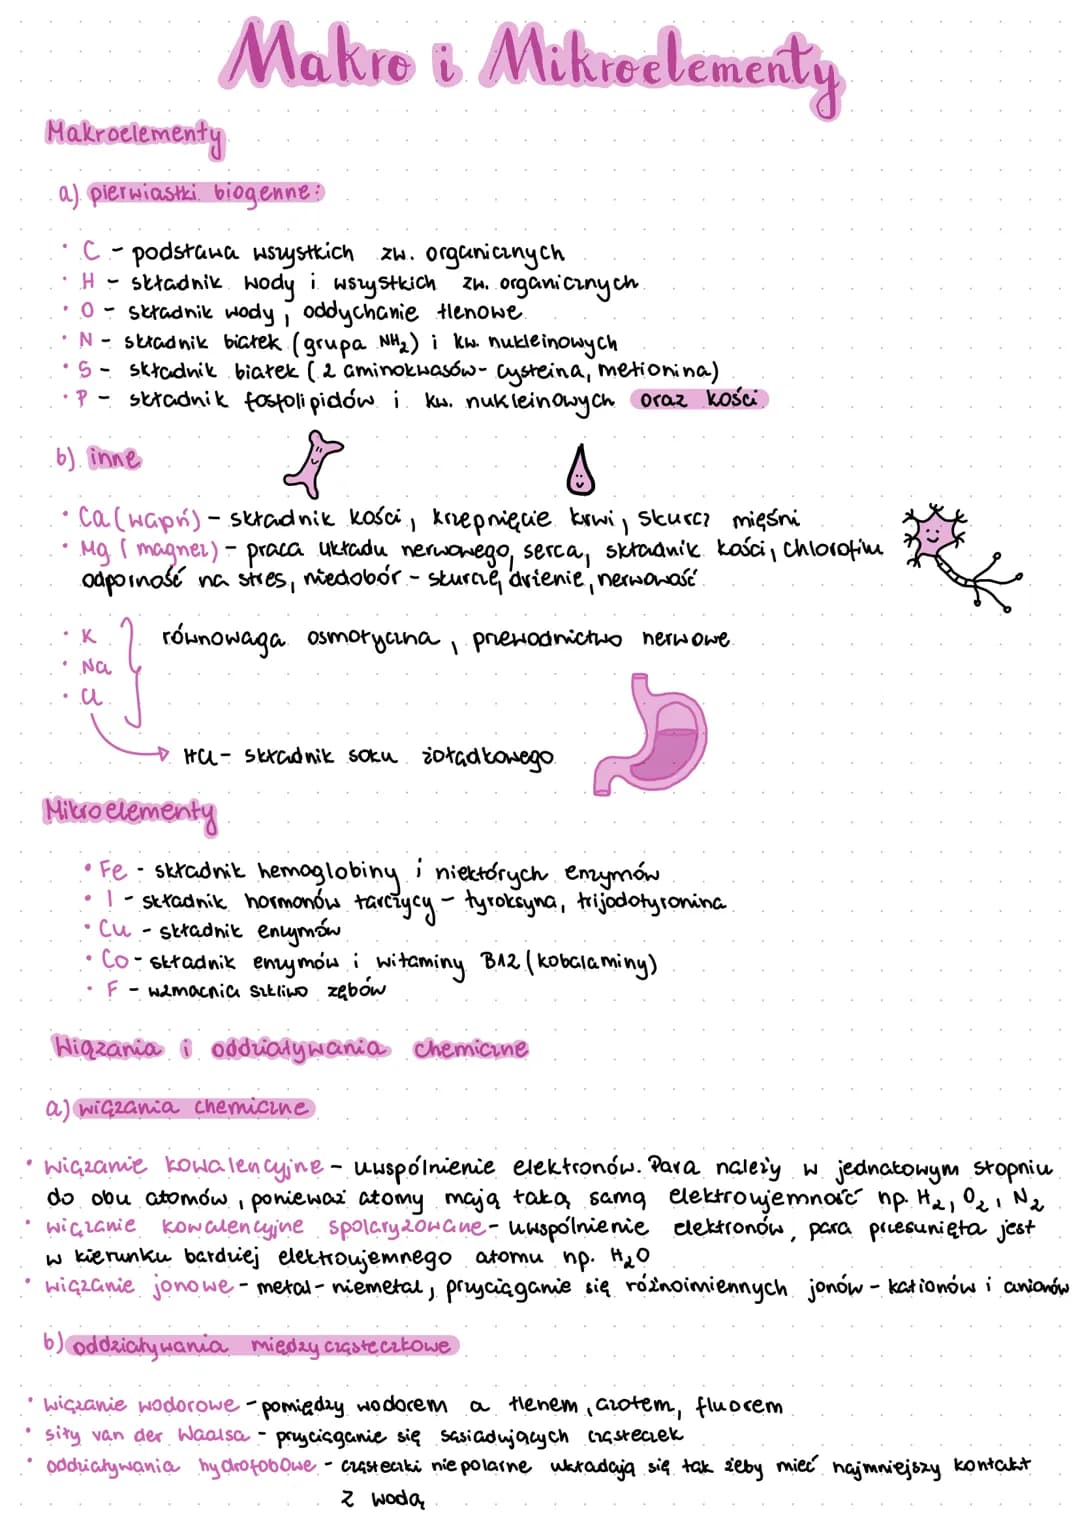 Makro i Mikroelementy
Makroelementy
a) pierwiastki biogenne:
• C - podstawa wszystkich zw. organicznych
• H - składnik wody i wszystkich zw. organicznych
• O - składnik wody, oddychanie tlenowe
• N - składnik białek (grupa NH₂) i kw. nukleinowych
• S - składnik białek (2 aminokwasów - cysteina, metionina)
• P - składnik fosfolipidów i kw. nukleinowych oraz kości
b) inne
• Ca (wapń) - składnik kości, krzepnięcie krwi, skurcz mięśni
• Mg (magnez) - praca układu nerwowego, serca, składnik kości, chlorofilu
odporność na stres, niedobór - skurcze, drżenie, nerwowość
• K równowaga osmotyczna, przewodnictwo nerwowe
• Na
• Cl
HCl - składnik soku żołądkowego
Mikroelementy
• Fe - składnik hemoglobiny i niektórych enzymów
• I - składnik hormonów tarczycy - tyroksyna, trijodotyronina
• Cu - składnik enzymów
• Co - składnik enzymów i witaminy B12 (kobalaminy)
• F - wzmacnia szkliwo zębów
Wiązania i oddziaływania chemiczne
a) wiązania chemiczne
• wiązanie kowalencyjne - uwspólnienie elektronów. Para należy w jednakowym stopniu
do obu atomów, ponieważ atomy mają taką samą elektroujemność np. H₂, O₂, N₂
• wiązanie kowalencyjne spolaryzowane - uwspólnienie elektronów, para przesunięta jest
w kierunku bardziej elektroujemnego atomu np. H₂O
• wiązanie jonowe - metal - niemetal, przyciąganie się różnoimiennych jonów - kationów i anionów
b) oddziaływania międzycząsteczkowe
• wiązanie wodorowe - pomiędzy wodorem a tlenem, azotem, fluorem
• siły van der Waalsa - przyciąganie się sąsiadujących cząsteczek
• oddziaływania hydrofobowe - cząsteczki niepolarne układają się tak żeby mieć najmniejszy kontakt
z wodą